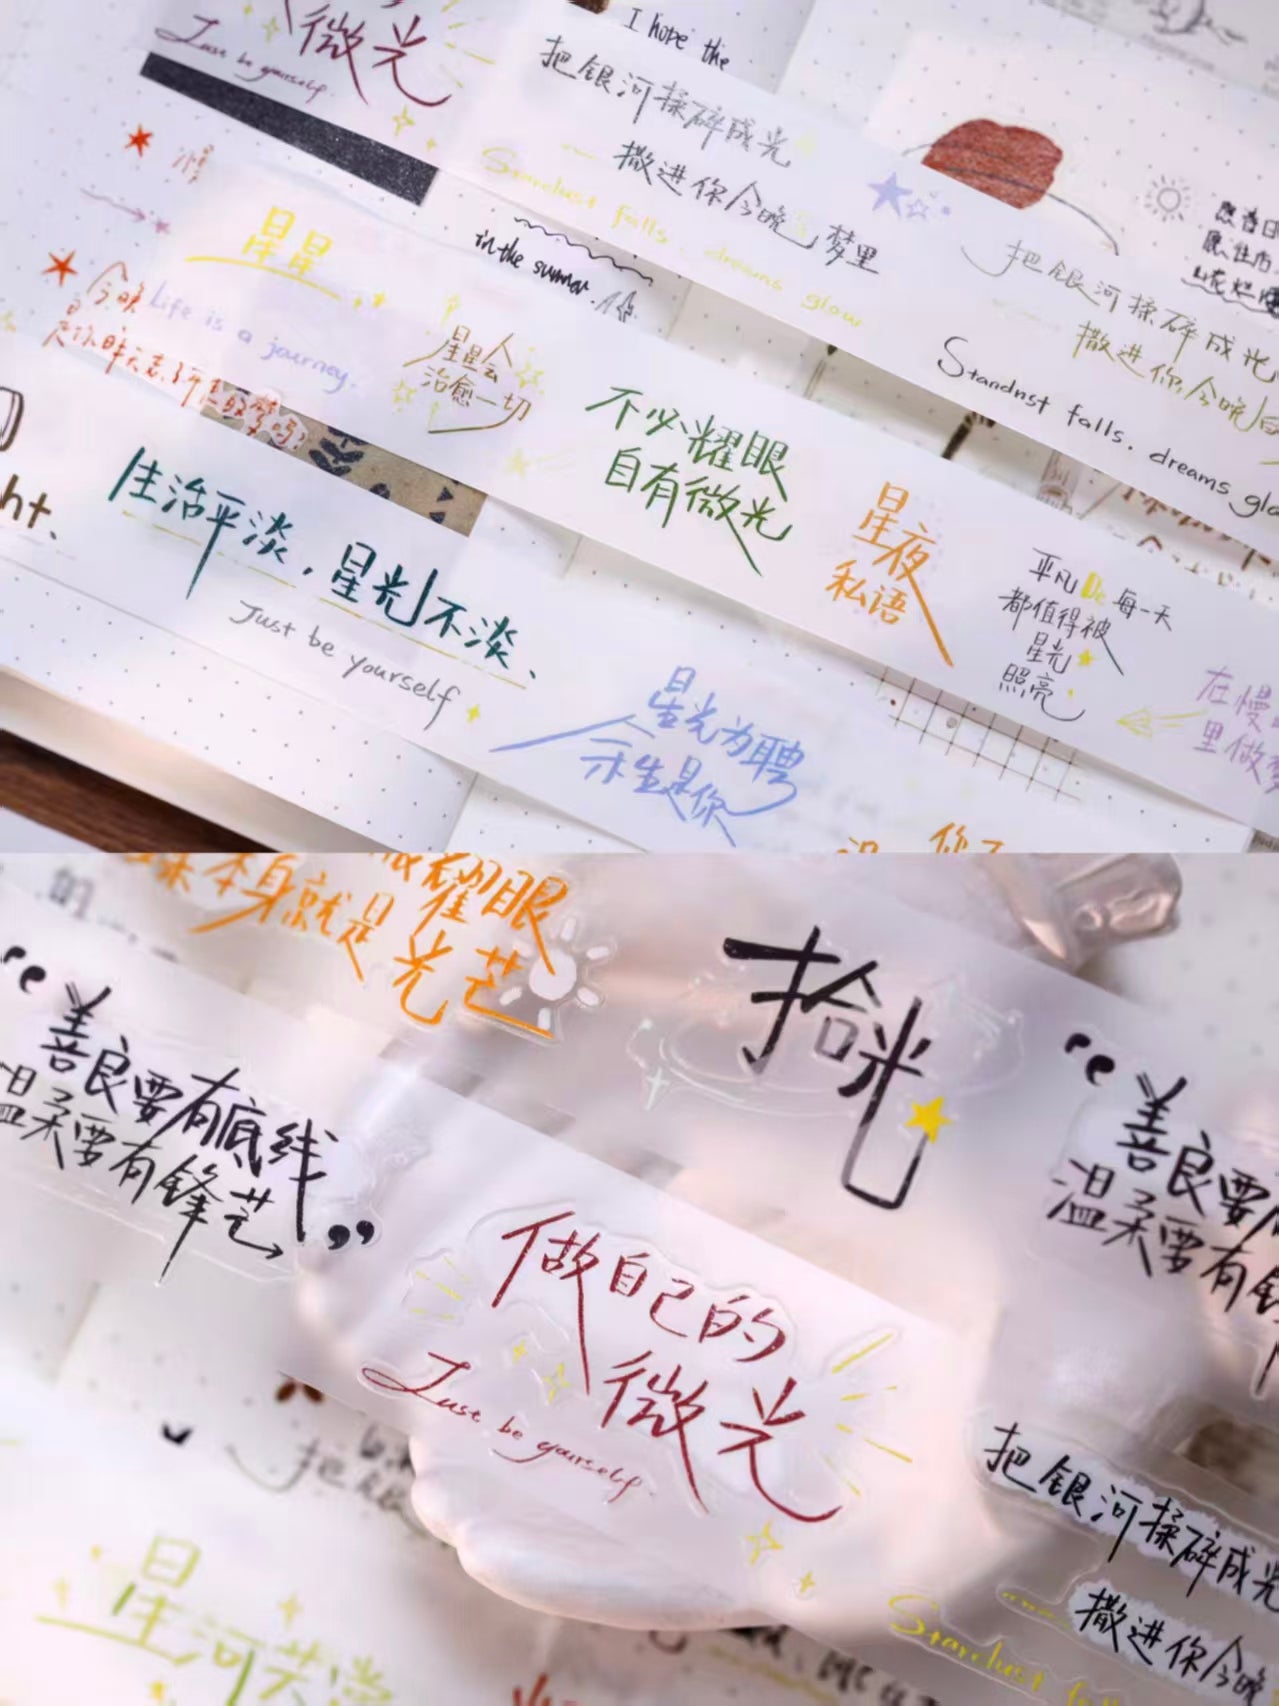 微光
Just be yourself.
I hope the
把银河揉碎成光
撒进你今晚梦里
Stardust falls, dreams glow
in the summer.
星星
Life is a journey.
今晚
星星会
治愈一切
把银河揉碎成光
撒进你今晚
Standnst falls, dreams glo
不必耀眼
自有微光
星夜
私语
平凡De每一天
都值得被
星光
照亮
在慢
里做梦
ht.
生活平淡,星光不淡、
Just be yourself
星光为聘
余生是你
本身就是
耀眼
光芒
拾光
“善良要有底线
温柔要有锋芒”
“善良要
温柔要有
做自己的
微光
Just be yourself.
把银河揉碎成光
撒进你今晚
Stardust fa
星河